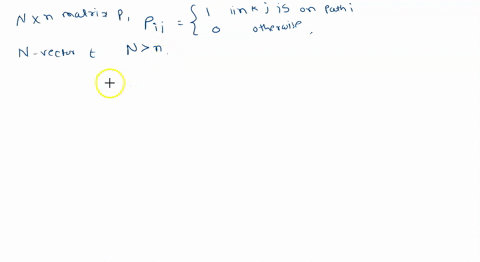 N x n matrix P, Pij = { 1 link j is on path i
0 otherwise,
N-vector t N > n.